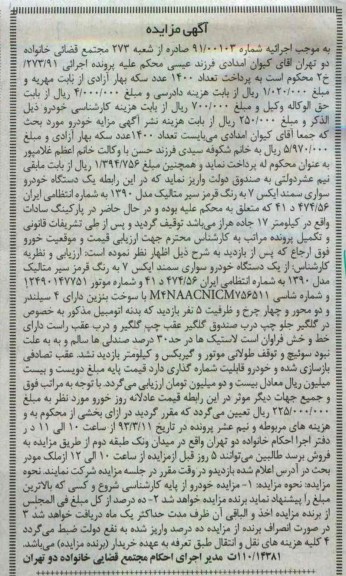 آگهی مزایده
به موجب اجرائیه شماره ۹۱/۰۰۱۰۳ صادره از شعبه ۲۷۳ مجتمع قضائی خانواده
دو تهران آقای کیوان امدادی فرزند عیسی محکم علیه پرونده اجرائی ۲۷۳/۹۱/
خ۲ محکوم است به پرداخت تعداد ۱۴۰۰ عدد سکه بهار آزادی از بابت مهریه و
مبلغ ۱/۰۲۰/۰۰۰ ریال از بابت هزینه دادرسی و مبلغ ۴/۰۰۰/۰۰۰ ریال از بابت
حق الوکاله وکیل و مبلغ ۷۰۰/۰۰۰ ریال از بابت هزینه کارشناسی خودرو ذیل
الذکر و مبلغ ۲۵۰/۰۰۰ ریال از بابت هزینه نشر آگهی مزایه خودرو مورد بحث
که جمعا آقای کیوان امدادی می‌بایست تعداد ۱۴۰۰عدد سکه بهار آزادی و مبلغ
۵/۹۷۰/۰۰۰ ریال به خانم شکوفه سیدی فرزند حسن با وکالت خانم اعظم غلامپور
به عنوان محکوم له پرداخت نماید و همچنین مبلغ ۱/۳۹۴/۷۵۶ ریال از بابت مابقی
نیم عشردولتی به صندوق دولت واریز نماید که در این رابطه یک دستگاه خودرو
سواری سمند ایکس ۷ به رنگ قرمز سیر متالیک مدل ۱۳۹۰ به شماره انتظامی ایران
۴۷۴/۵۶ د ۴۱ که متعلق به محکم علیه بوده و در حال حاضر در پارکینگ سادات
واقع در کیلومتر ۱۷ جاده هراز می‌باشد توقیف گردید و پس از طی تشریفات قانونی
و تکمیل پرونده مراتب به کارشناس محترم جهت ارزیابی قیمت و موقعیت خورو
فوق ارجاع که پس از بازدید به شرح ذیل اظهار نظر نموده است: ارزیابی و نظریه
کارشناس: از یک دستگاه خودرو سواری سمند ایکس ۷ به رنگ قرمز سیر متالیک
مدل ۱۳۹۰ به شماره انتظامی ایران ۴۷۴/۵۶ د ۴۱ و شماره موتور ۱۲۴۹۰۱۴۷۷۵۱
و شماره شاسی M۴NAACNICM۷۵۶۵۱۱ با سوخت بنزین دارای ۴ سیلندر
و دو محور و چهار چرخ و ظرفیت ۵ نفر بازدید که بدنه اتومبیل مذکور به خصوص
در گلگیر جلو چپ درب صندوق گلگیر عقب چپ گلگیر و درب عقب راست دارای
خط و خش فراوان است لاستیک ها در حد۳۰ درصد صندلی ها سالم و به به علت
نبود سوئیچ و توقف طولانی موتور و گیربکس و کیلومتر بازدید نشد. عقب تصادفی
بازسازی شده و خودرو قابلیت شماره گذاری دارد قیمت پایه مبلغ دویست و بیست
میلیون ریال معادل بیست و دو میلیون تومان ارزیابی می‌گردد. با توجه به مراتب فوق
و جمیع جهات دیگر موثر در این رابطه قیمت عادلانه روز خورو مورد نظر به مبلغ
۲۲۵/۰۰۰/۰۰۰ ریال تعیین می‌گردد که مقرر گردید در ازای بخشی از محکوم به و
هزینه های مربوطه و نیم عشر پرونده در تاریخ ۹۳/۳/۱۱ از ساعت ۱۰ الی ۱۱ د ر
دفتر اجرا احکام خانواده دو تهران واقع در میدان ونک طبقه دوم از طریق مزایده به
فروش برسد طالبین می‌توانند ۵ روز قبل ازمزایده از ساعت ۱۰ الی ۱۲ ازملک مودر
بحث در آدرس اعلام شده بازدیدو در وقت مقرر در جلسه مزایده شرکت نمایند. نحوه
مزایده: نحوه مزایده: ۱- مزایده خودرو از پایه کارشناسی شروع و کسی که بالاترین
مبلغ را پیشنهاد نماید برنده مزایده خواهد شد ۲- ده درصد از کل مبلغ فی المجلس
از برنده مزایده اخذ و الباقی آن ظرف مدت حداکثر یک ماه دریافت خواهد شد ۳
در صورت انصراف برنده از مزایده ده درصد واریز شده به نفع دولت ضبط می‌گردد
۴ کلیه هزینه های نقل و انتقال طبق تعرفه به عهده خریدار (برنده مزایده) می‌باشد.
۱۱۰/۱۴۳۸۱ت مدیر اجرای احکام مجتمع قضایی خانواده دو تهران